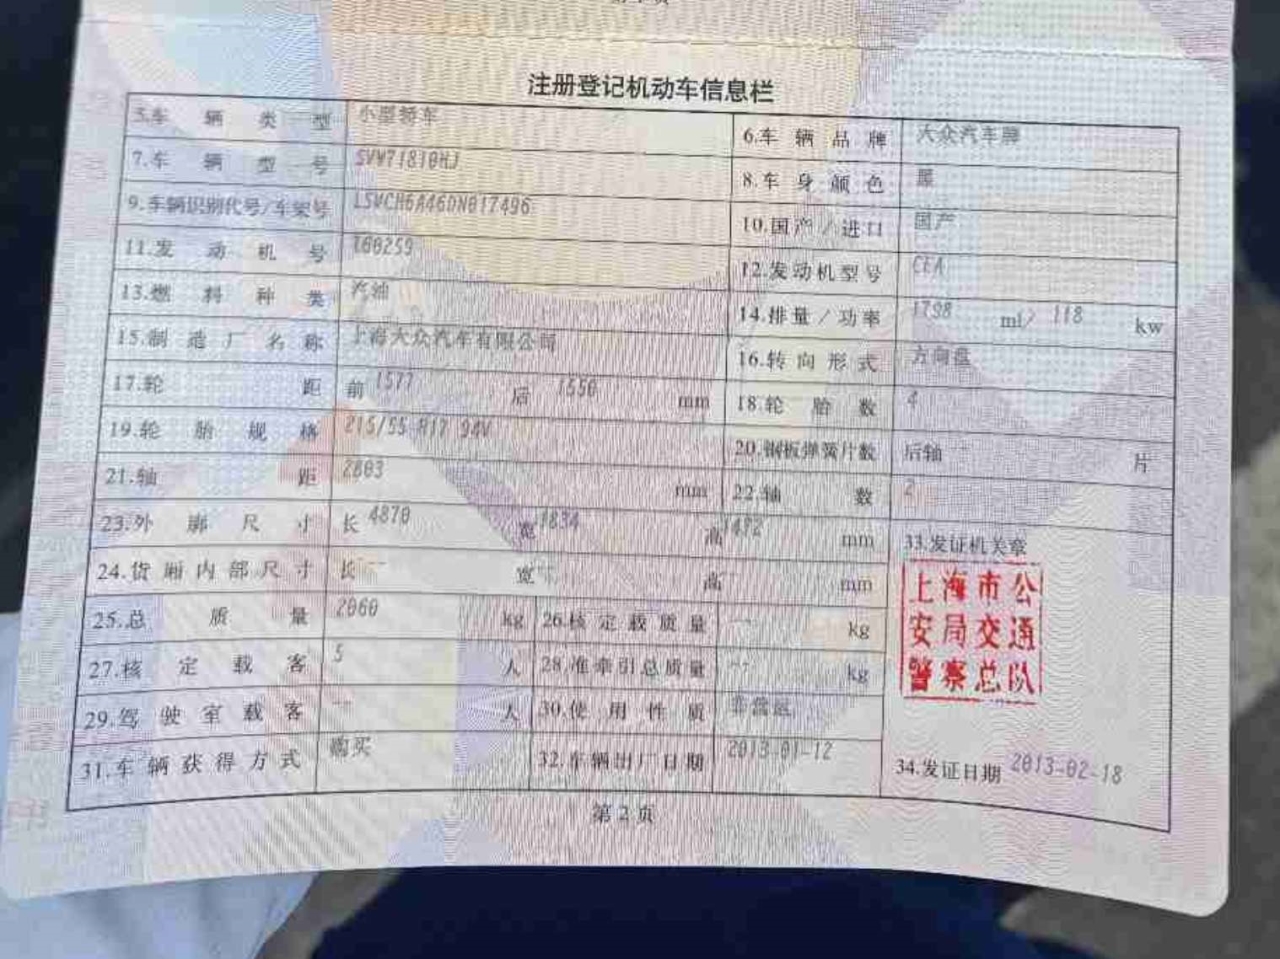 注册登记机动车信息栏
5.车辆类型 小型轿车 6.车辆品牌 大众汽车牌
7.车辆型号 SVW71810HJ 8.车身颜色 黑
9.车辆识别代号/车架号 LSVCH6A46DN017496 10.国产/进口 国产
11.发动机号 160259 12.发动机型号 CEA
13.燃料种类 汽油 14.排量/功率 1798 ml/ 118 kw
15.制造厂名称 上海大众汽车有限公司 16.转向形式 方向盘
17.轮距 前 1577 后 1550 mm 18.轮胎数 4
19.轮胎规格 215/55 R17 94V 20.钢板弹簧片数 后轴 片
21.轴距 2803 mm 22.轴数 2
23.外廓尺寸 长 4870 宽 1834 高 1472 mm 33.发证机关章
24.货厢内部尺寸 长 -- 宽 -- 高 -- mm
上海市公
安局交通
警察总队
25.总质量 2060 kg 26.核定载质量 -- kg
27.核定载客 5 人 28.准牵引总质量 -- kg
29.驾驶室载客 -- 人 30.使用性质 非营运
31.车辆获得方式 购买 32.车辆出厂日期 2013-01-12 34.发证日期 2013-02-18
第2页